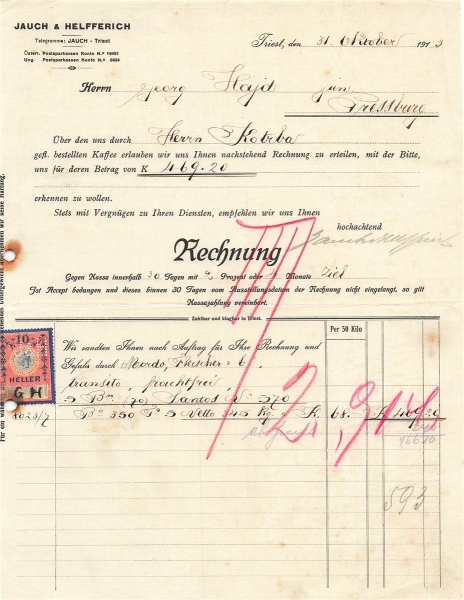 JAUCH & HELFFERICH
Telegramme: JAUCH - Triest
Österr. Postsparkassen Konto N.º 15401
Ung. Postsparkassen Konto N.º 6034
Triest, den 31. Oktober 1913
Herrn Georg Hajd jun
Pressburg
Über den uns durch Herrn Kotrba
gefl. bestellten Kaffee erlauben wir uns Ihnen nachstehend Rechnung zu erteilen, mit der Bitte,
uns für deren Betrag von K 469.20
erkennen zu wollen.
Stets mit Vergnügen zu Ihren Diensten, empfehlen wir uns Ihnen
hochachtend
Rechnung
Gegen Kassa innerhalb 30 Tagen mit 2 Prozent oder Monate Ziel
Ist Accept bedungen und dieses binnen 30 Tagen vom Ausstellungsdatum der Rechnung nicht eingelangt, so gilt
Kassazahlung vereinbart.
Zahlbar und klagbar in Triest.
Per 50 Kilo
Wir sandten Ihnen nach Auftrag für Ihre Rechnung und
Gefahr durch Mordo, Fleischer &
transito, frachtfrei,
5 Bn (70) Santos 570
1023/7 Bo 350 Ta 5 Netto 345 Kg K 68. K 469.20
593
10
HELLER
G H
III
12 914